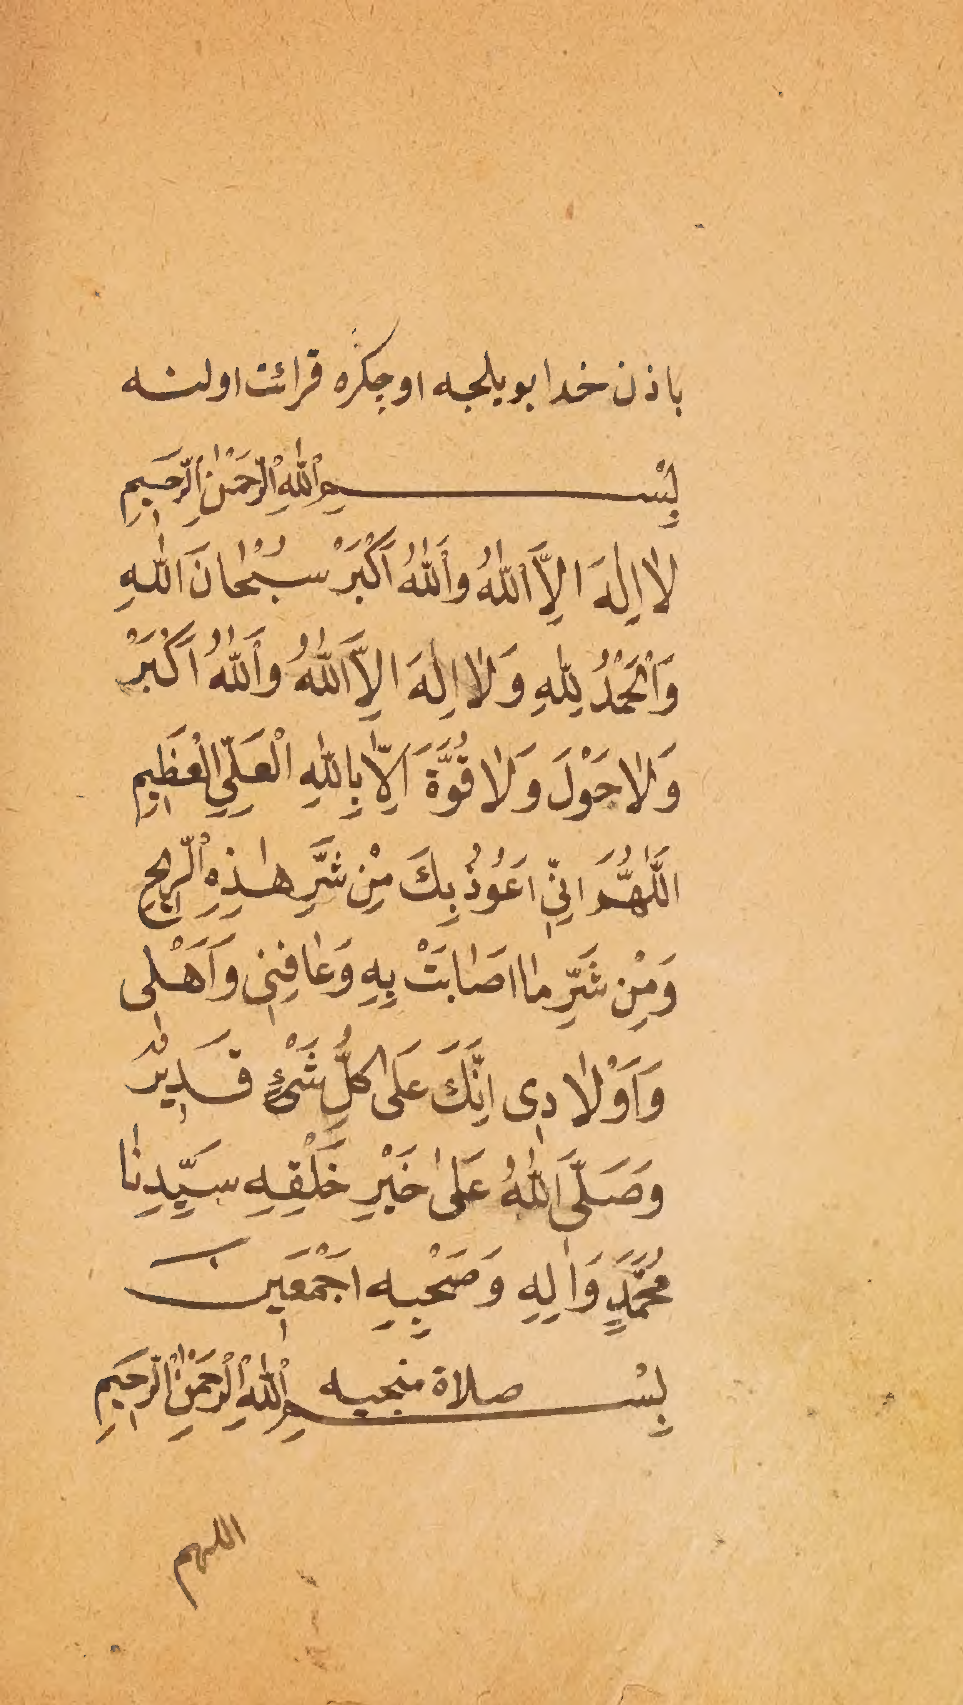 باذن خدا بويلجه اوچكره قرائت اولنه
بِسْمِ اللّٰهِ الرَّحْمٰنِ الرَّحِيمِ
لا اِلٰهَ اِلاَّ اللّٰهُ وَاللّٰهُ اَكْبَرْ سُبْحَانَ اللّٰهِ
وَالْحَمْدُ لِلّٰهِ وَلَا اِلٰهَ اِلاَّ اللّٰهُ وَاللّٰهُ اَكْبَرْ
وَلَا حَوْلَ وَلَا قُوَّةَ اِلاَّ بِاللّٰهِ الْعَلِيِّ الْعَظِيمِ
اَللّٰهُمَّ اِنِّي اَعُوذُ بِكَ مِنْ شَرِّ هٰذِهِ الرِّيحِ
وَمِنْ شَرِّ مَا اَصَابَتْ بِهِ وَعَافِنِى وَاَهْلِى
وَاَوْلَادِى اِنَّكَ عَلَى كُلِّ شَىْءٍ قَدِيرٌ
وَصَلَّى اللّٰهُ عَلٰى خَيْرِ خَلْقِهِ سَيِّدِنَا
مُحَمَّدٍ وَاٰلِهِ وَصَحْبِهِ اَجْمَعِينَ
صلاة منجيه
بِسْمِ اللّٰهِ الرَّحْمٰنِ الرَّحِيمِ
اللهم